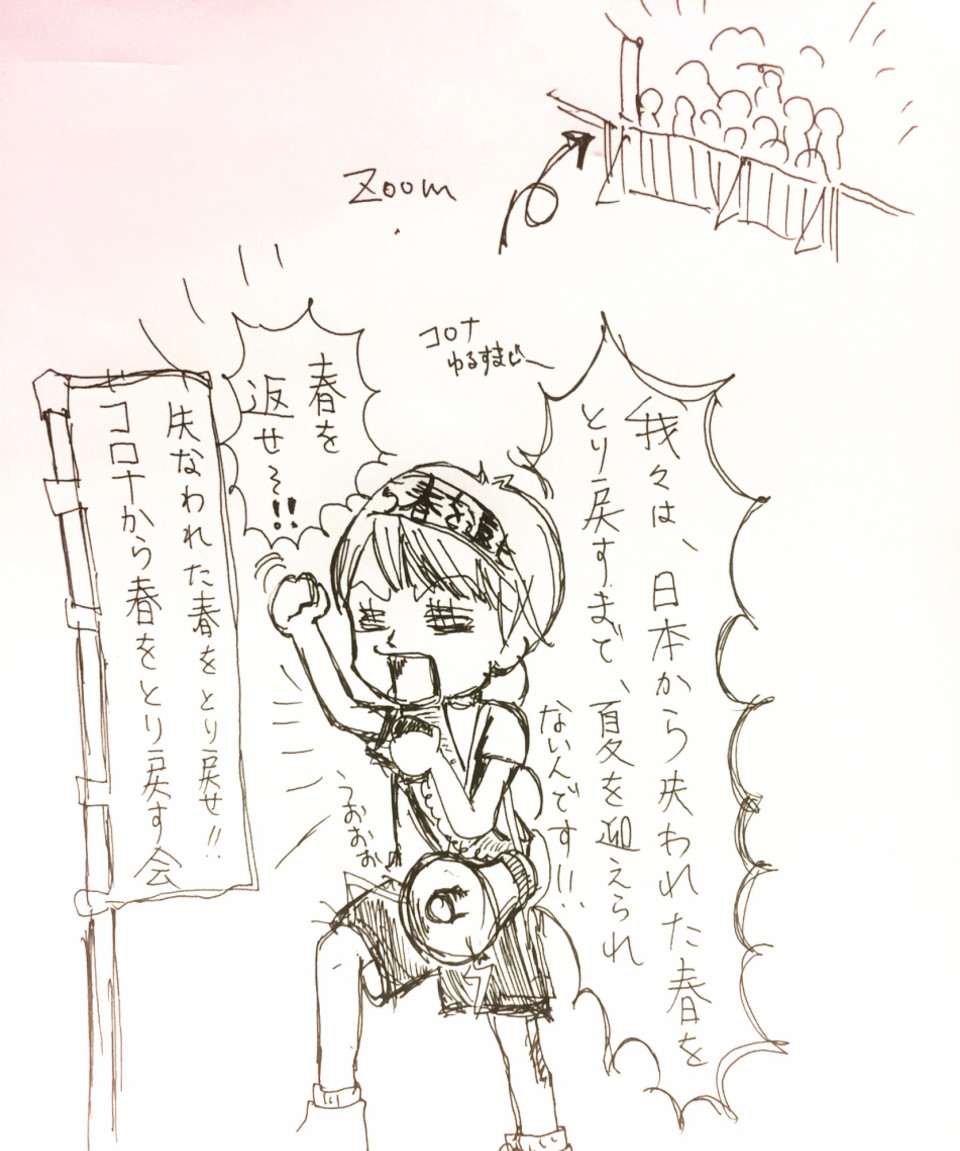 Zoom
コロナ
ゆるすまじ
我々は、日本から失われた春を
とり戻すまで、夏を迎えられ
ないんです!!
春を
返せ~!!
失なわれた春をとり戻せ!!
コロナから春をとり戻す会
うおぉぉ